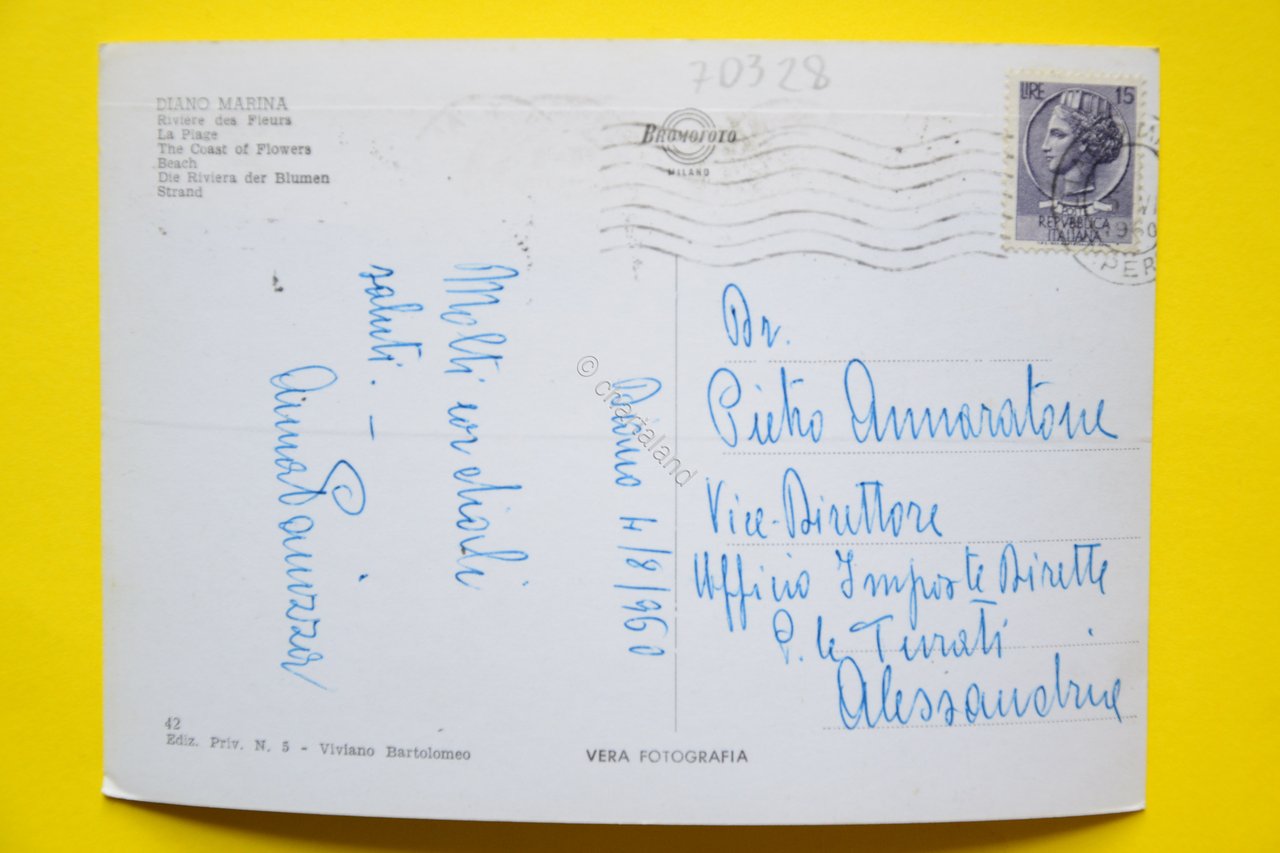 70328
DIANO MARINA
Rivière des Fleurs
La Plage
The Coast of Flowers
Beach
Die Riviera der Blumen
Strand
BROMOFOTO
MILANO
LIRE 15
POSTE
REPVBBLICA
ITALIANA
1960
Dr.
Pietro Annaratone
Vice-Direttore
Ufficio Imposte Dirette
P. le Turati
Alessandria
4/8/960
Molti cordiali
saluti. -
Anna
© chartaland
42
Ediz. Priv. N. 5 - Viviano Bartolomeo
VERA FOTOGRAFIA